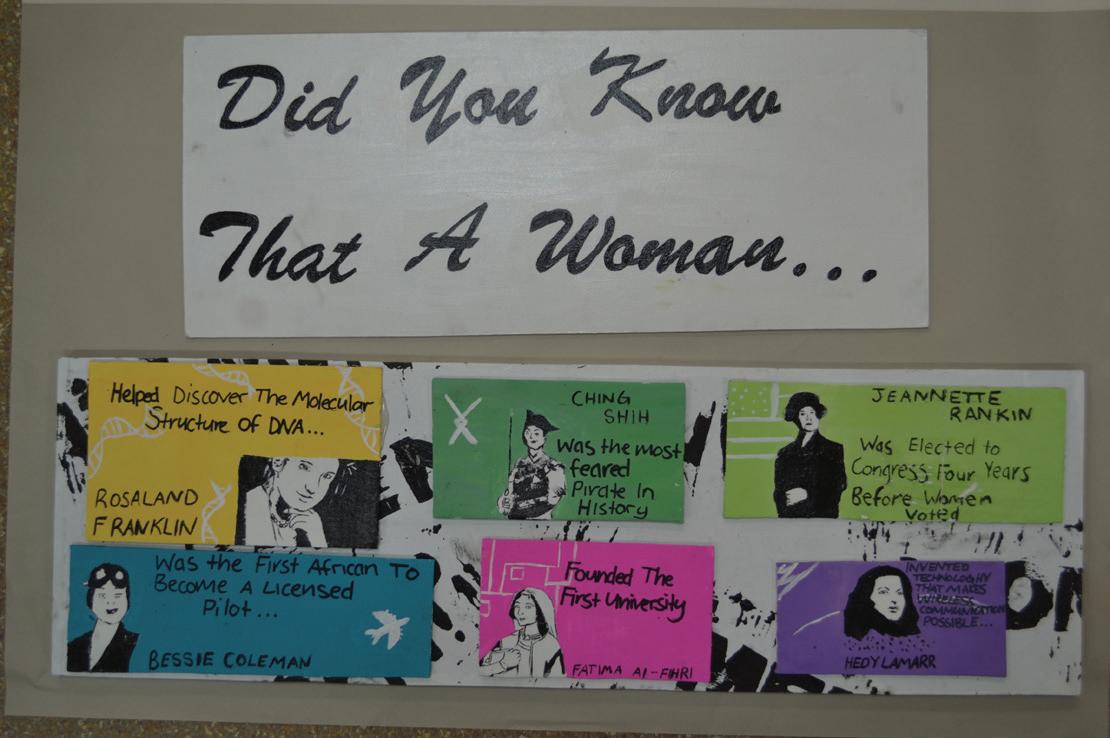 Did You Know
That A Woman...
Helped Discover The Molecular
Structure Of DNA...
ROSALAND
FRANKLIN
CHING
SHIH
Was the most
feared
Pirate In
History
JEANNETTE
RANKIN
Was Elected to
Congress Four Years
Before Women
Voted
Was the First African To
Become A Licensed
Pilot...
BESSIE COLEMAN
Founded The
First University
FATIMA Al-FIHRI
INVENTED
TECHNOLOGHY
THAT MAKES
WIRELESS
COMMUNICATION
POSSIBLE...
HEDY LAMARR